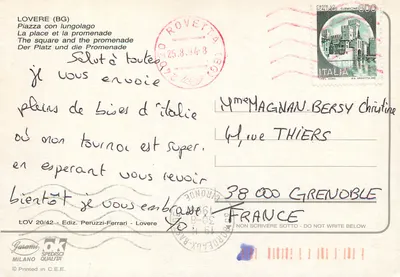 LOVERE (BG)
Piazza con lungolago
La place et la promenade
The square and the promenade
Der Platz und die Promenade
Salut à toutes
je vous envoie
pleins de bises d'italie
où mon tournoi est super.
en esperant vous revoir
bientôt je vous embrasse
LOV 20/42 - Ediz. Peruzzi-Ferrari - Lovere
MILANO
SPEDISCI
QUALITA'
Printed in C.E.E.
24020 ROVETTA (BG)
25.8.94-8
ITALIA
Mme MAGNAN-BERSY Christine
41, rue THIERS
38 000 GRENOBLE
FRANCE
NON SCRIVERE SOTTO - DO NOT WRITE BELOW